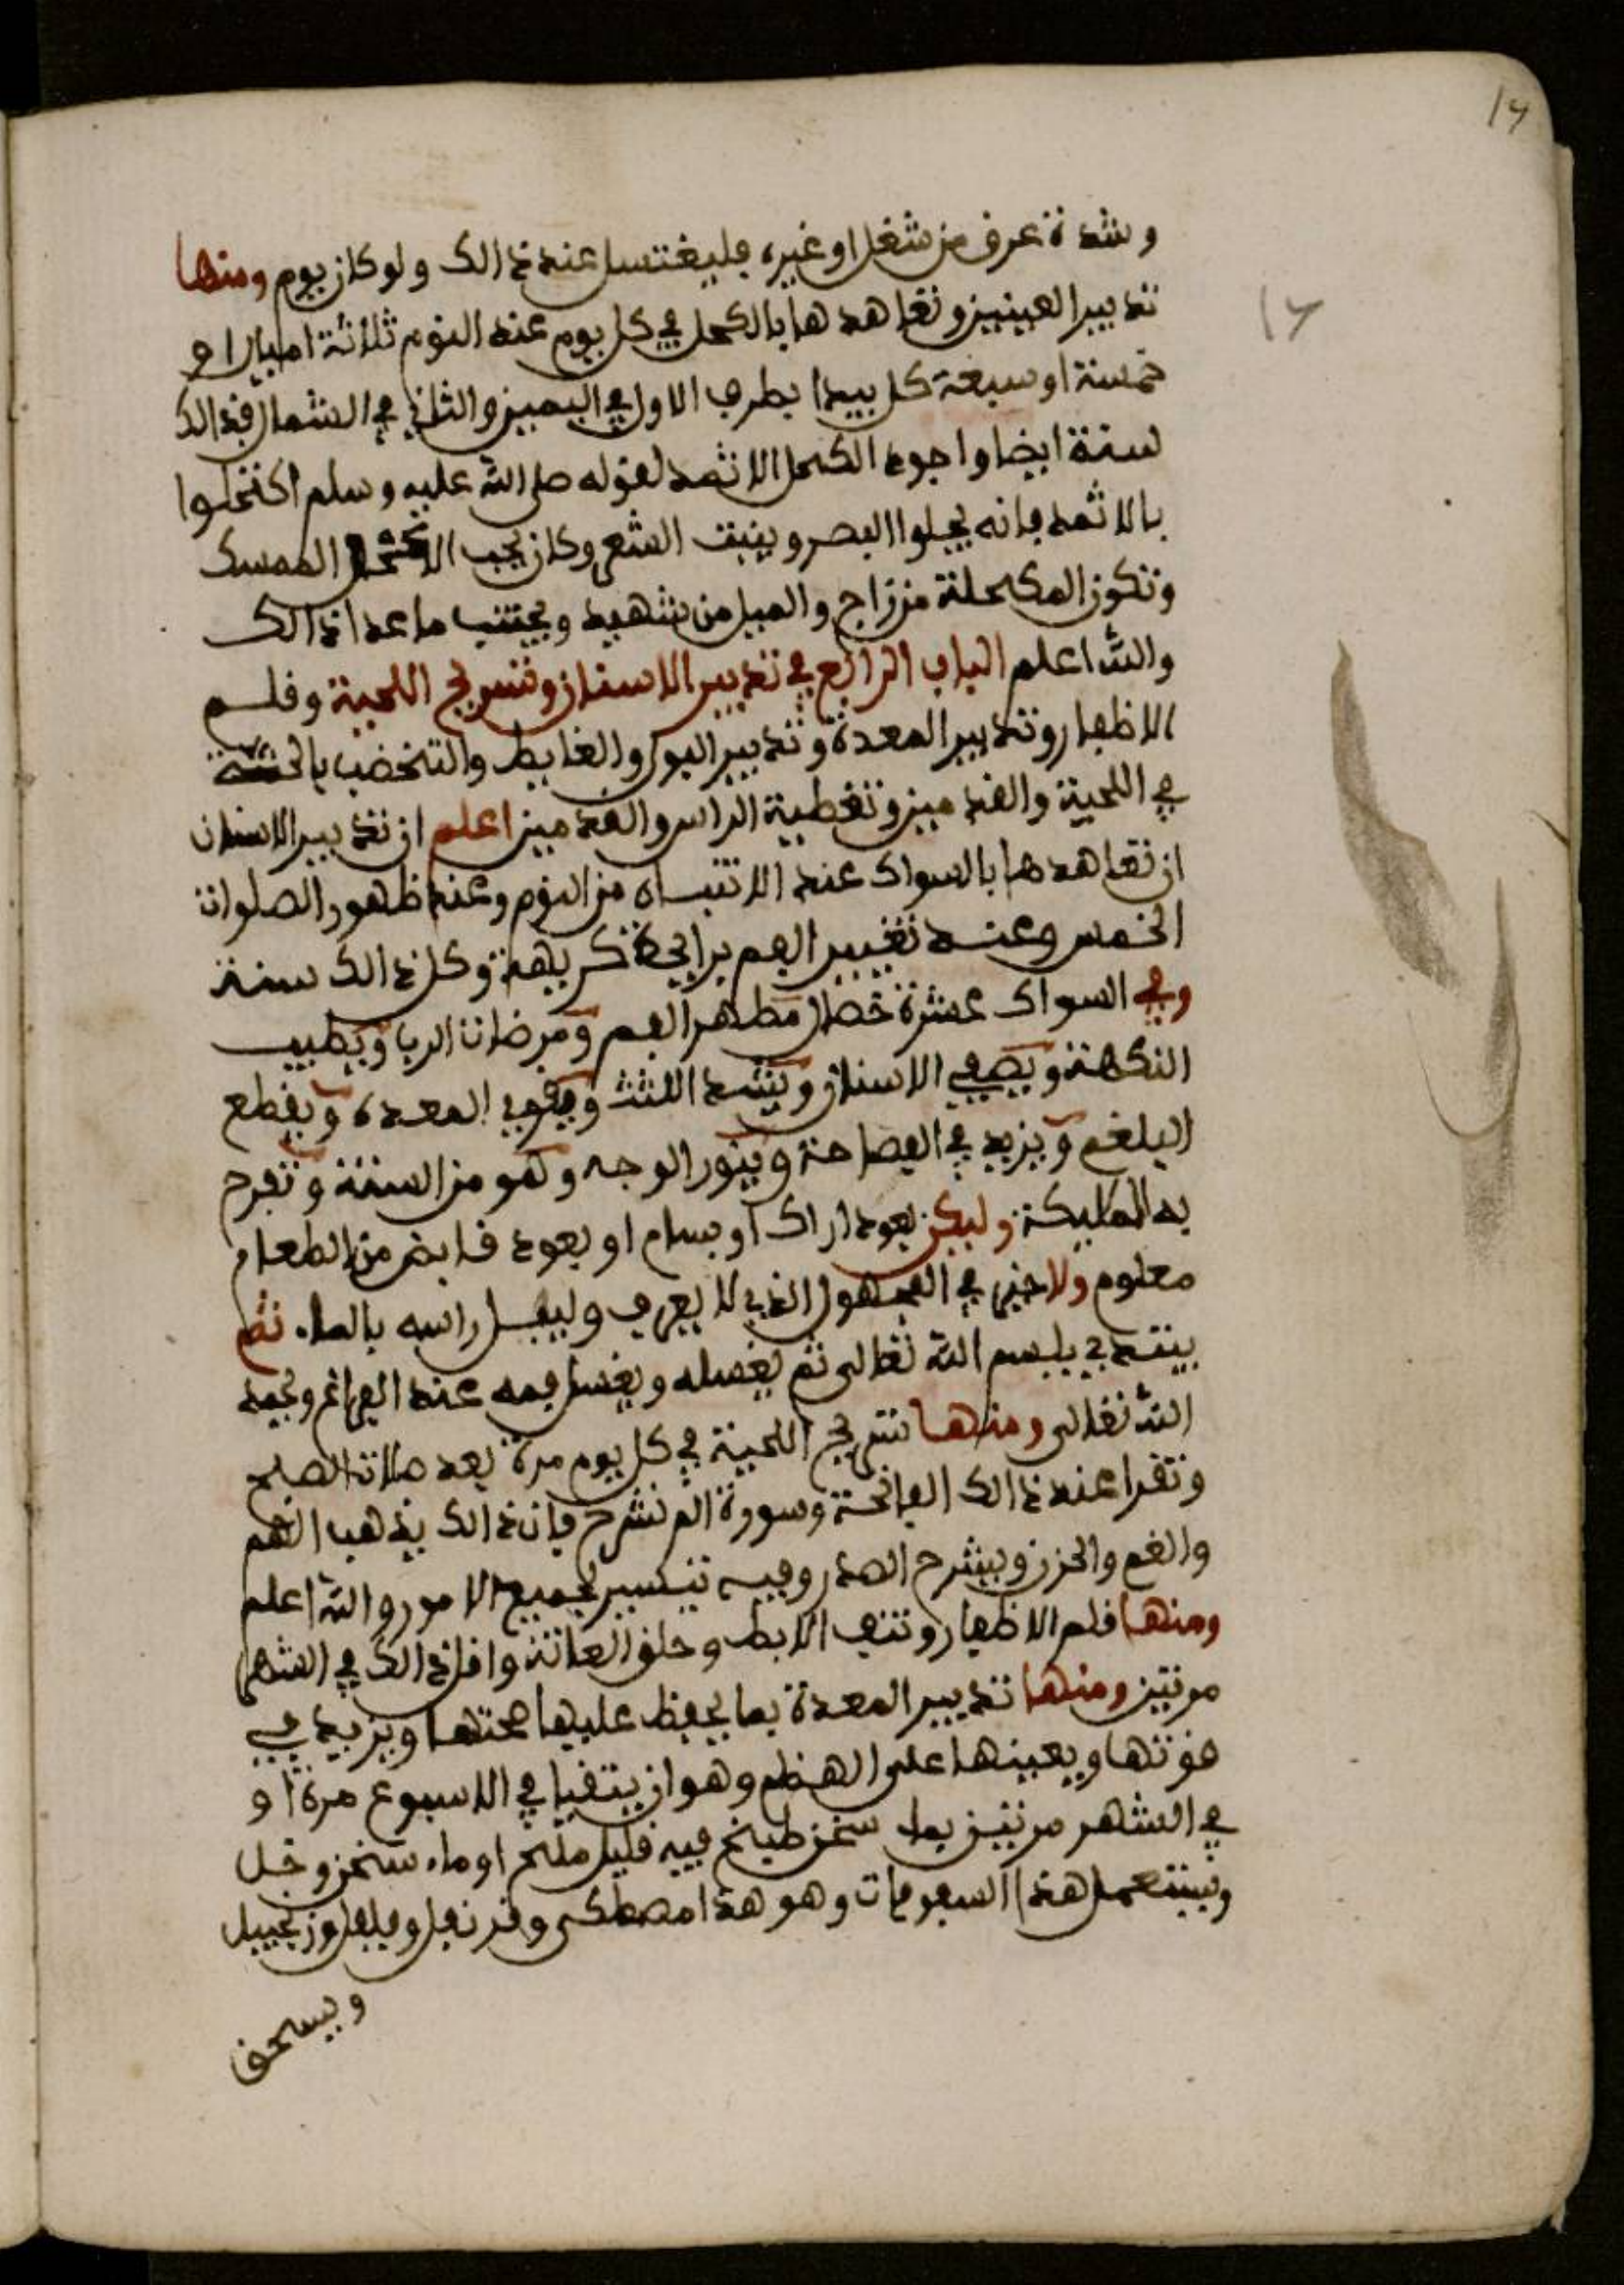 14
١٢
وشدة عرق من شغل او غيره فليغتسل عند ذالك ولو كان يوم ومنها
تدبير العينين وتعاهدها بالكحل في كل يوم عند النوم ثلاثة اميال او
خمسة او سبعة كل بيدا بطرف الاول في اليمين والثاني في الشمال فذالك
سنة ايضا واجود الكحل الاثمد لقوله صلى الله عليه وسلم اكتحلوا
بالاثمد فانه يجلوا البصر وينبت الشعر وكان يحب الممسك
وتكون المكحلة من زاج والميل من شهيد ويجتنب ما عدا ذالك
والله اعلم الباب الرابع في تدبير الاسنان وتسريح اللحية وقلم
الاظفار وتدبير المعدة وتدبير البول والغايط والتخضب
في اللحية والقدمين وتغطية الراس والقدمين اعلم ان تدبير الاسنان
ان تعاهدها بالسواك عند الانتباه من النوم وعند ظهور الصلوات
الخمس وعند تغيير الفم برايحة كريهة وكل ذالك سنة
وفي السواك عشرة خصال مطهر الفم ومرضات الرب ويطيب
النكهة ويصفي الاسنان ويشد اللثث ويقوي المعدة ويقطع
البلغم ويزيد في الفصاحة وينور الوجه وهو من السنة وتفرح
به الملايكة وليكن بعود اراك او بسام او بعود قابض من الطعام
معلوم ولا خير في المجهول الذي لا يعرف وليبل راسه بالماء ثم
يبتدي ببسم الله تعالى ثم يغصله ويغسل فمه عند الفراغ ويحمد
الله تعالى ومنها تسريح اللحية في كل يوم مرة بعد صلاة الصبح
وتقرا عند ذالك الفاتحة وسورة الم نشرح فان ذالك يذهب الهم
والغم والحزن ويشرح الصدر وفيه تيسير لجميع الامور والله اعلم
ومنها قلم الاظفار ونتف الابط وحلق العانة واقل ذالك في الشهر
مرتين ومنها تدبير المعدة بما يحفظ عليها صحتها ويزيد في
قوتها ويعينها على الهظم وهو ان يتقيا في الاسبوع مرة او
في الشهر مرتين بماء سخن طبخ فيه قليل ملح او ماء سخن وخل
ويستعمل هذا السفوفات وهو هذا مصطكى وقرنفل وفلفل وزنجبيل
ويسحق